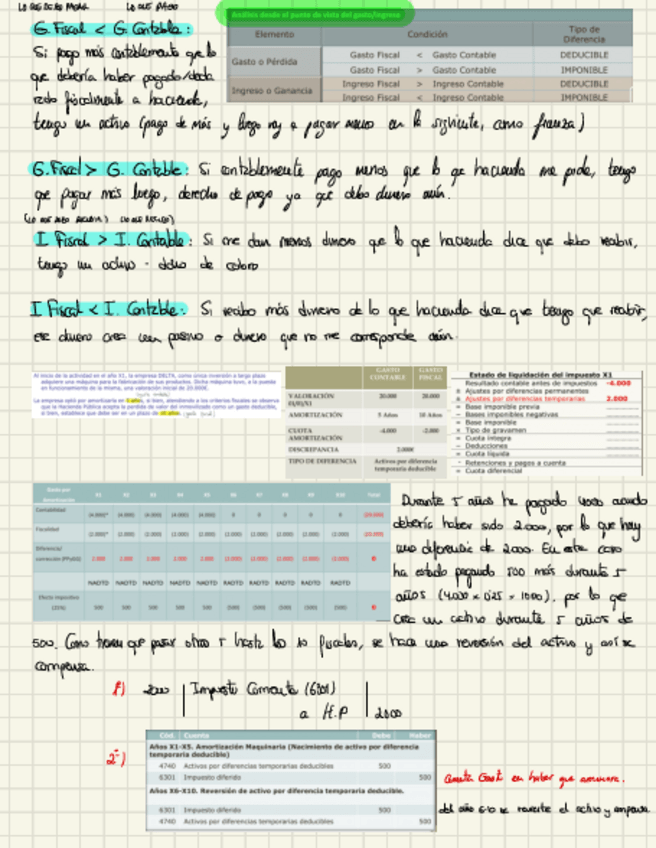 LO QUE DEBO PAGAR LO QUE PAGO
G. Fiscal < G. Contable:
Si pago más contablemente que lo
que debería haber pagado/dado
fiscalmente a hacienda,
tengo un activo (pago de más y luego voy a pagar menos en la siguiente, como fianza)
Análisis desde el punto de vista del gasto/ingreso
Elemento Condición Tipo de Diferencia
Gasto o Pérdida Gasto Fiscal < Gasto Contable DEDUCIBLE
Gasto Fiscal > Gasto Contable IMPONIBLE
Ingreso o Ganancia Ingreso Fiscal > Ingreso Contable DEDUCIBLE
Ingreso Fiscal < Ingreso Contable IMPONIBLE
G. Fiscal > G. Contable: Si contablemente pago menos que lo que hacienda me pide, tengo
que pagar más luego, derecho de pago ya que debo dinero aún.
I Fiscal > I. Contable: Si me dan menos dinero que lo que hacienda dice que debo recibir,
tengo un activo - dcho de cobro
I Fiscal < I. Contable: Si recibo más dinero de lo que hacienda dice que tengo que recibir,
ese dinero crea un pasivo o dinero que no me corresponde aún.
Al inicio de la actividad en el año X1, la empresa DELTA, como única inversión a largo plazo
adquiere una máquina para la fabricación de sus productos. Dicha máquina tuvo, a la puesta
en funcionamiento de la misma, una valoración inicial de 20.000€.
La empresa optó por amortizarla en 5 años, si bien, atendiendo a los criterios fiscales se observa
que la Hacienda Pública acepta la pérdida de valor del inmovilizado como un gasto deducible,
si bien, establece que debe ser en un plazo de 10 años.
GASTO CONTABLE GASTO FISCAL
VALORACIÓN 01/01/X1 20.000 20.000
AMORTIZACIÓN 5 Años 10 Años
CUOTA AMORTIZACIÓN -4.000 -2.000
DISCREPANCIA 2.000€
TIPO DE DIFERENCIA Activos por diferencia temporaria deducible
Estado de liquidación del impuesto X1
Resultado contable antes de impuestos -4.000
± Ajustes por diferencias permanentes
± Ajustes por diferencias temporarias 2.000
= Base imponible previa
- Bases imponibles negativas
= Base imponible
x Tipo de gravamen
= Cuota íntegra
- Deducciones
= Cuota líquida
- Retenciones y pagos a cuenta
= Cuota diferencial
Gasto por Amortización X1 X2 X3 X4 X5 X6 X7 X8 X9 X10 Total
Contabilidad (4.000)* (4.000) (4.000) (4.000) (4.000) 0 0 0 0 0 (20.000)
Fiscalidad (2.000)* (2.000) (2.000) (2.000) (2.000) (2.000) (2.000) (2.000) (2.000) (2.000) (20.000)
Diferencia/ corrección 2.000 2.000 2.000 2.000 2.000 (2.000) (2.000) (2.000) (2.000) (2.000) 0
NADTD NADTD NADTD NADTD NADTD RADTD RADTD RADTD RADTD RADTD
Efecto impositivo (25%) 500 500 500 500 500 (500) (500) (500) (500) (500) 0
Durante 5 años he pagado 4000 cuando
debería haber sido 2.000, por lo que hay
una diferencia de 2000. En este caso
ha estado pagando 500 más durante 5
años (4.000 x 0,25 = 1000). por lo que
crea un activo durante 5 años de
500. Como tienen que pasar otros 5 hasta los 10 fiscales, se hace una reversión del activo y así se
compensa.
1º) 2000 Impuesto Corriente (6301)
a H.P 2000
2º)
Cód. Cuenta Debe Haber
Años X1-X5. Amortización Maquinaria (Nacimiento de activo por diferencia
temporaria deducible)
4740 Activos por diferencias temporarias deducibles 500
6301 Impuesto diferido 500
Años X6-X10. Reversión de activo por diferencia temporaria deducible.
6301 Impuesto diferido 500
4740 Activos por diferencias temporarias deducibles 500
Cuenta Gasto en haber que
del año 6-10 se revierte el activo y